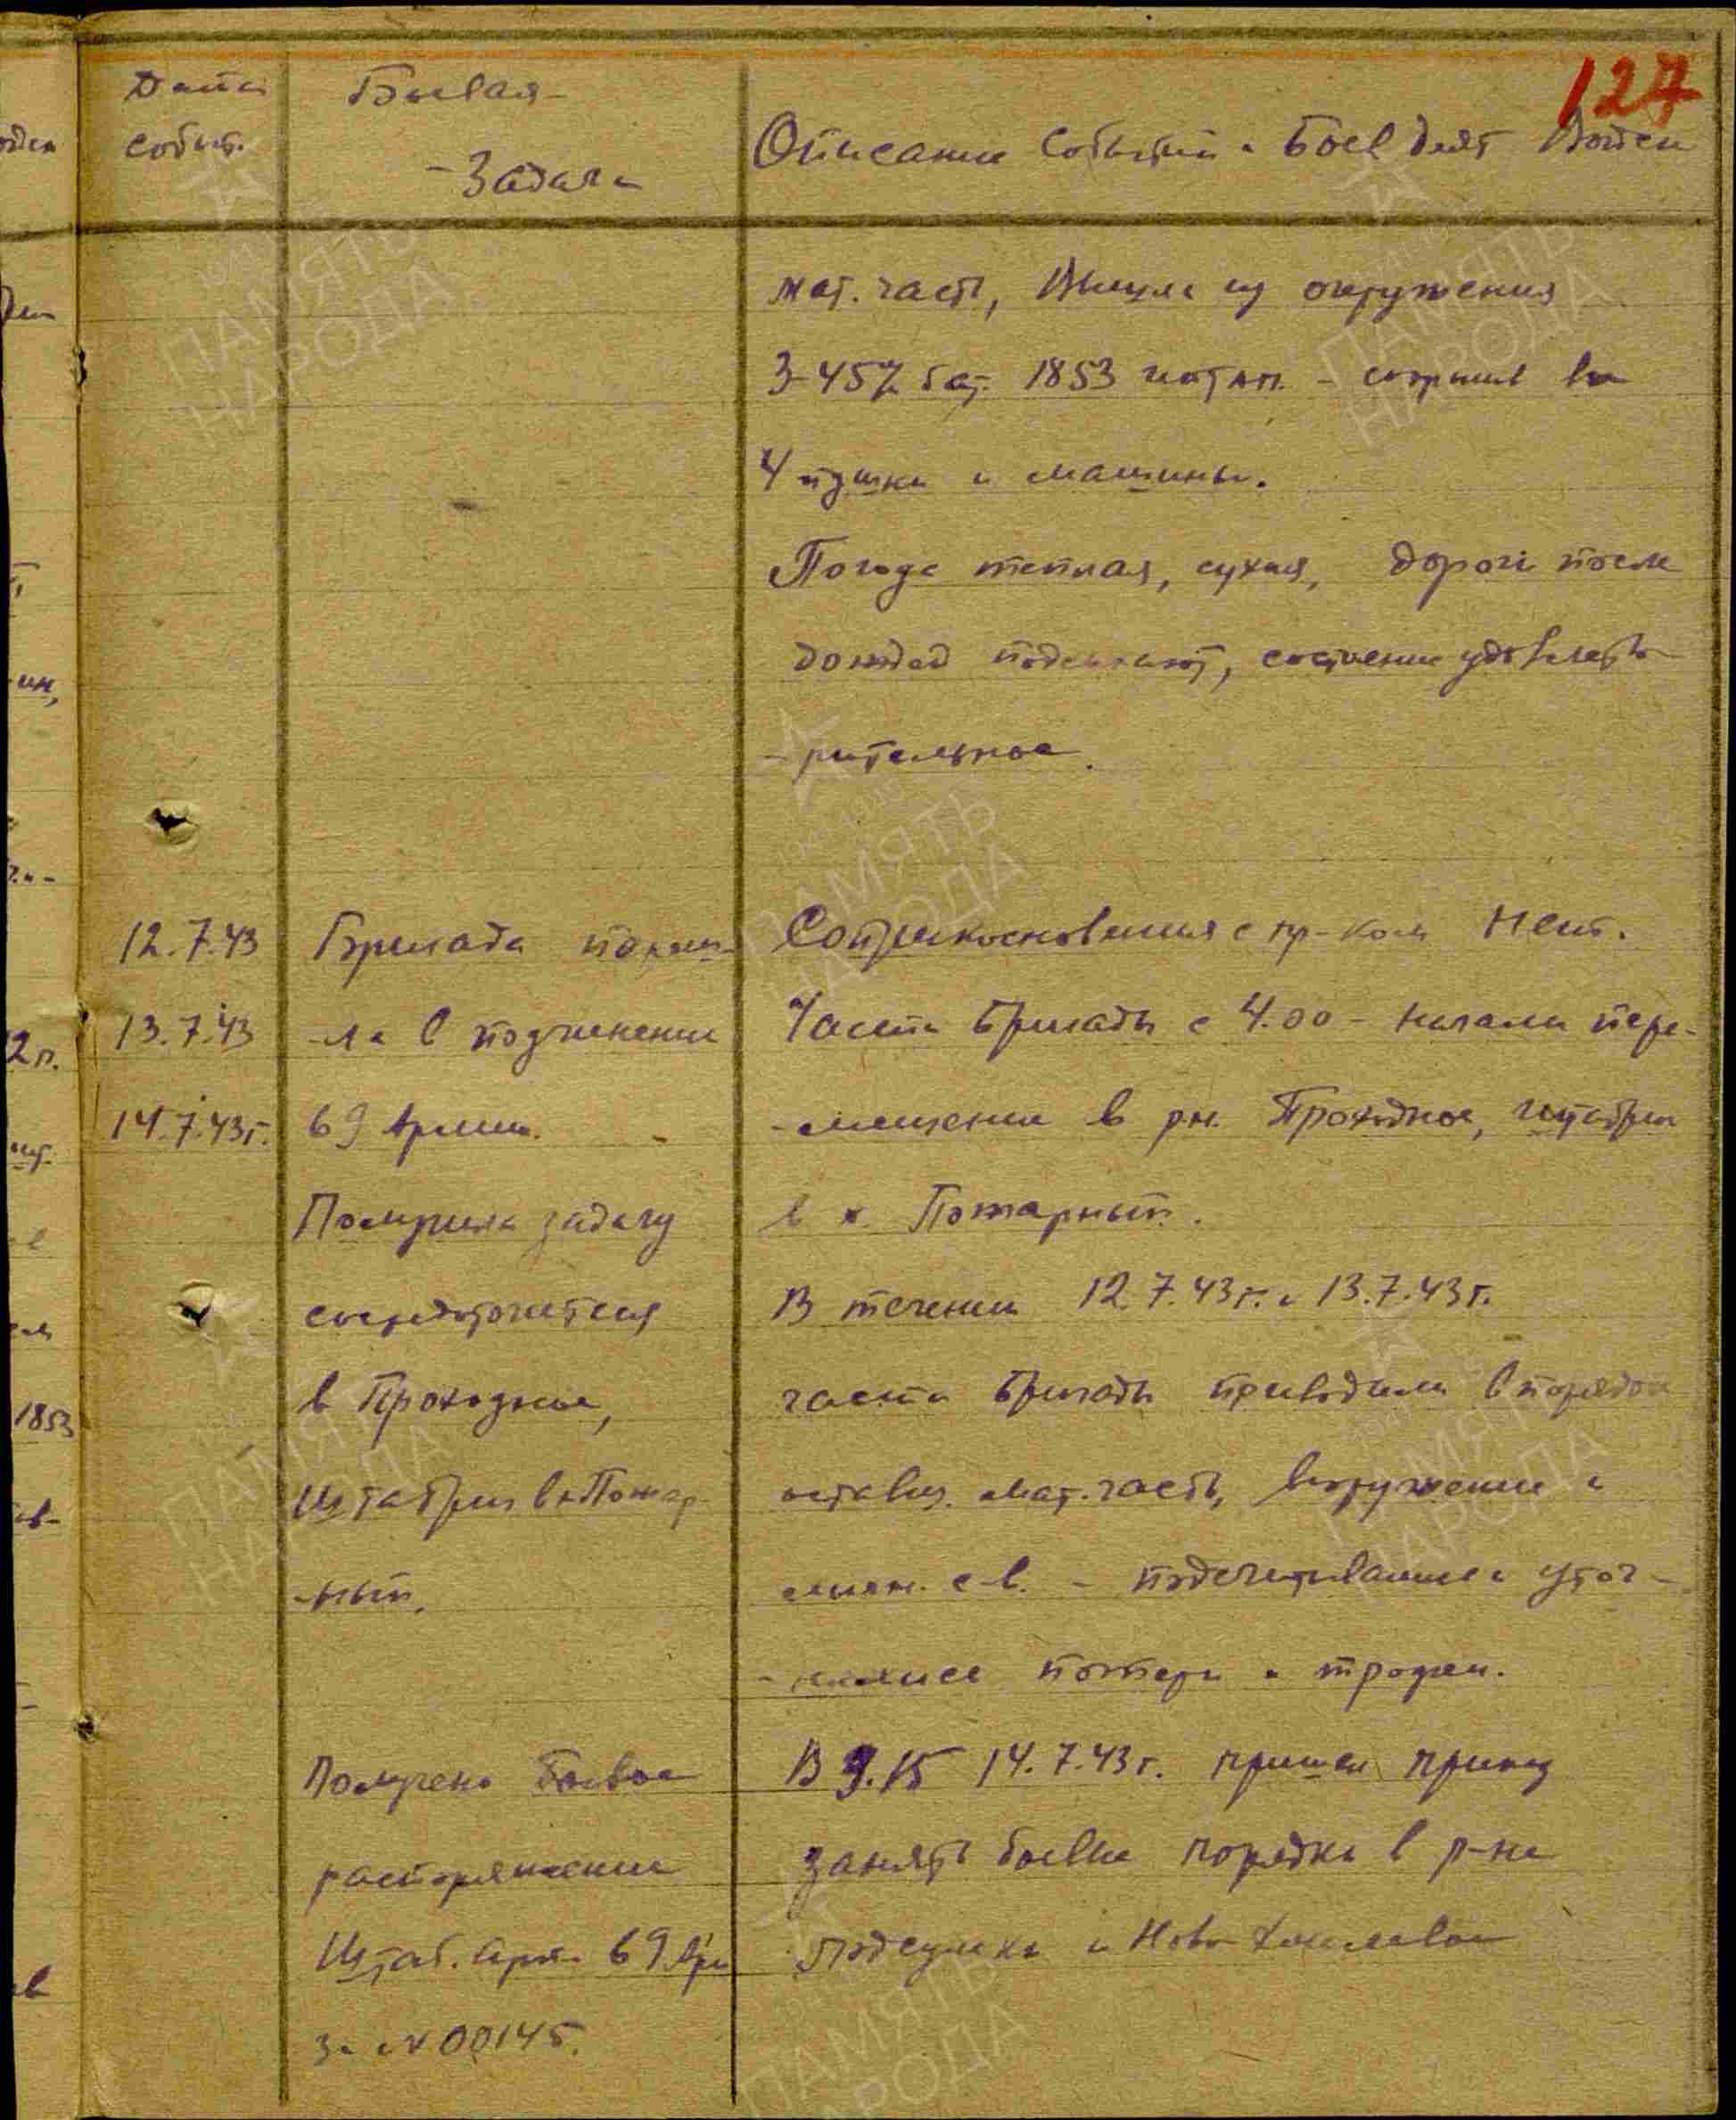 127
Дата
событ.
Боевая
- Задача
Описание событий и боев деят войск
мат. часть, Вышла из окружения
3-45% бат. 1853 иптап. - сохранив
4 пушки и машины.
Погода теплая, сухая, дороги после
дождей подсыхают, состояние удовлетво
- рительное.
12.7.43
13.7.43
14.7.43г.
Бригада поступи-
-ла в подчинение
69 Армии.
Получила задачу
сосредоточится
в Проходное,
Штабриг в х. Пожар-
-ный.
Получено боевое
распоряжение
Штаб. арт. 69 Арм
за № 00145.
Соприкосновения с пр-ком нет.
Части бригады с 4.00 - начали пере-
-мещение в рн. Проходное, штабриг
в х. Пожарный.
В течении 12.7.43г. и 13.7.43г.
части бригады приводили в порядок
оставш. мат. часть, вооружение и
личн. с-в. - подсчитывались и уточ-
-нялись потери и трофеи.
В 9.15 14.7.43г. пришел приказ
занять боевые порядки в р-не
Подсумки и Ново Хмелевой
ПАМЯТЬ
НАРОДА